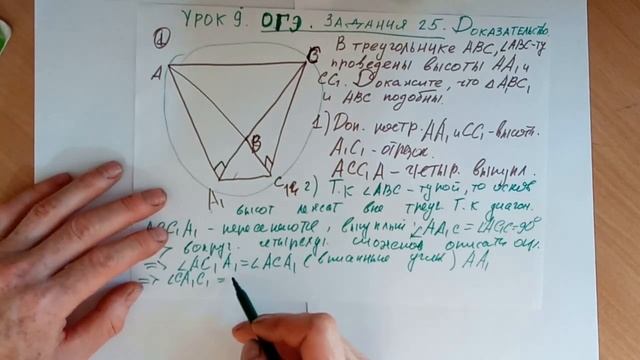 Урок 9. ОГЭ. Задания 25. Доказательство
①
В треугольнике ABC, ∠ABC-ту
проведены высоты AA₁ и
CC₁. Докажите, что △ABC₁
и ABC подобны.
A
C
B
A₁
C₁
1) Доп. постр. AA₁ и CC₁ - высот.
A₁C₁ - отрезок.
ACC₁A - четыр. выпукл.
2) Т.к ∠ABC - тупой, то основ
высот лежат вне треуг. Т.к диагон.
выпуклый ∠AA₁C = ∠AC₁C = 90°
=> вокруг четырехуг. можно описать окр.
=> ∠AC₁A₁ = ∠ACA₁ (вписанные углы) AA₁
=> ∠CA₁C₁ =